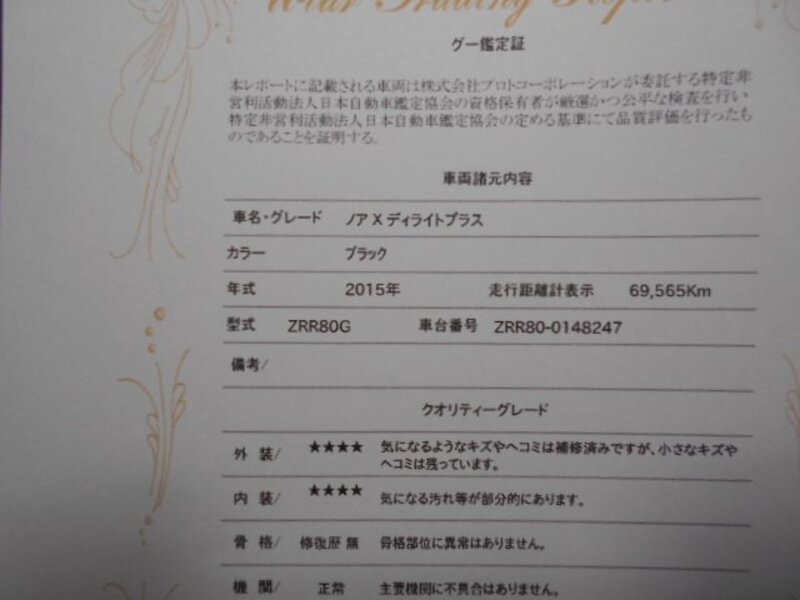 グー鑑定証
本レポートに記載される車両は株式会社プロトコーポレーションが委託する特定非
営利活動法人日本自動車鑑定協会の資格保有者が厳選かつ公平な検査を行い
特定非営利活動法人日本自動車鑑定協会の定める基準にて品質評価を行ったも
のであることを証明する。
車両諸元内容
車名・グレード ノア X ディライトプラス
カラー ブラック
年式 2015年 走行距離計表示 69,565Km
型式 ZRR80G 車台番号 ZRR80-0148247
備考/
クオリティーグレード
外 装/ ★★★★ 気になるようなキズやヘコミは補修済みですが、小さなキズや
ヘコミは残っています。
内 装/ ★★★★ 気になる汚れ等が部分的にあります。
骨 格/ 修復歴 無 骨格部位に異常はありません。
機 関/ 正常 主要機関に不具合はありません。